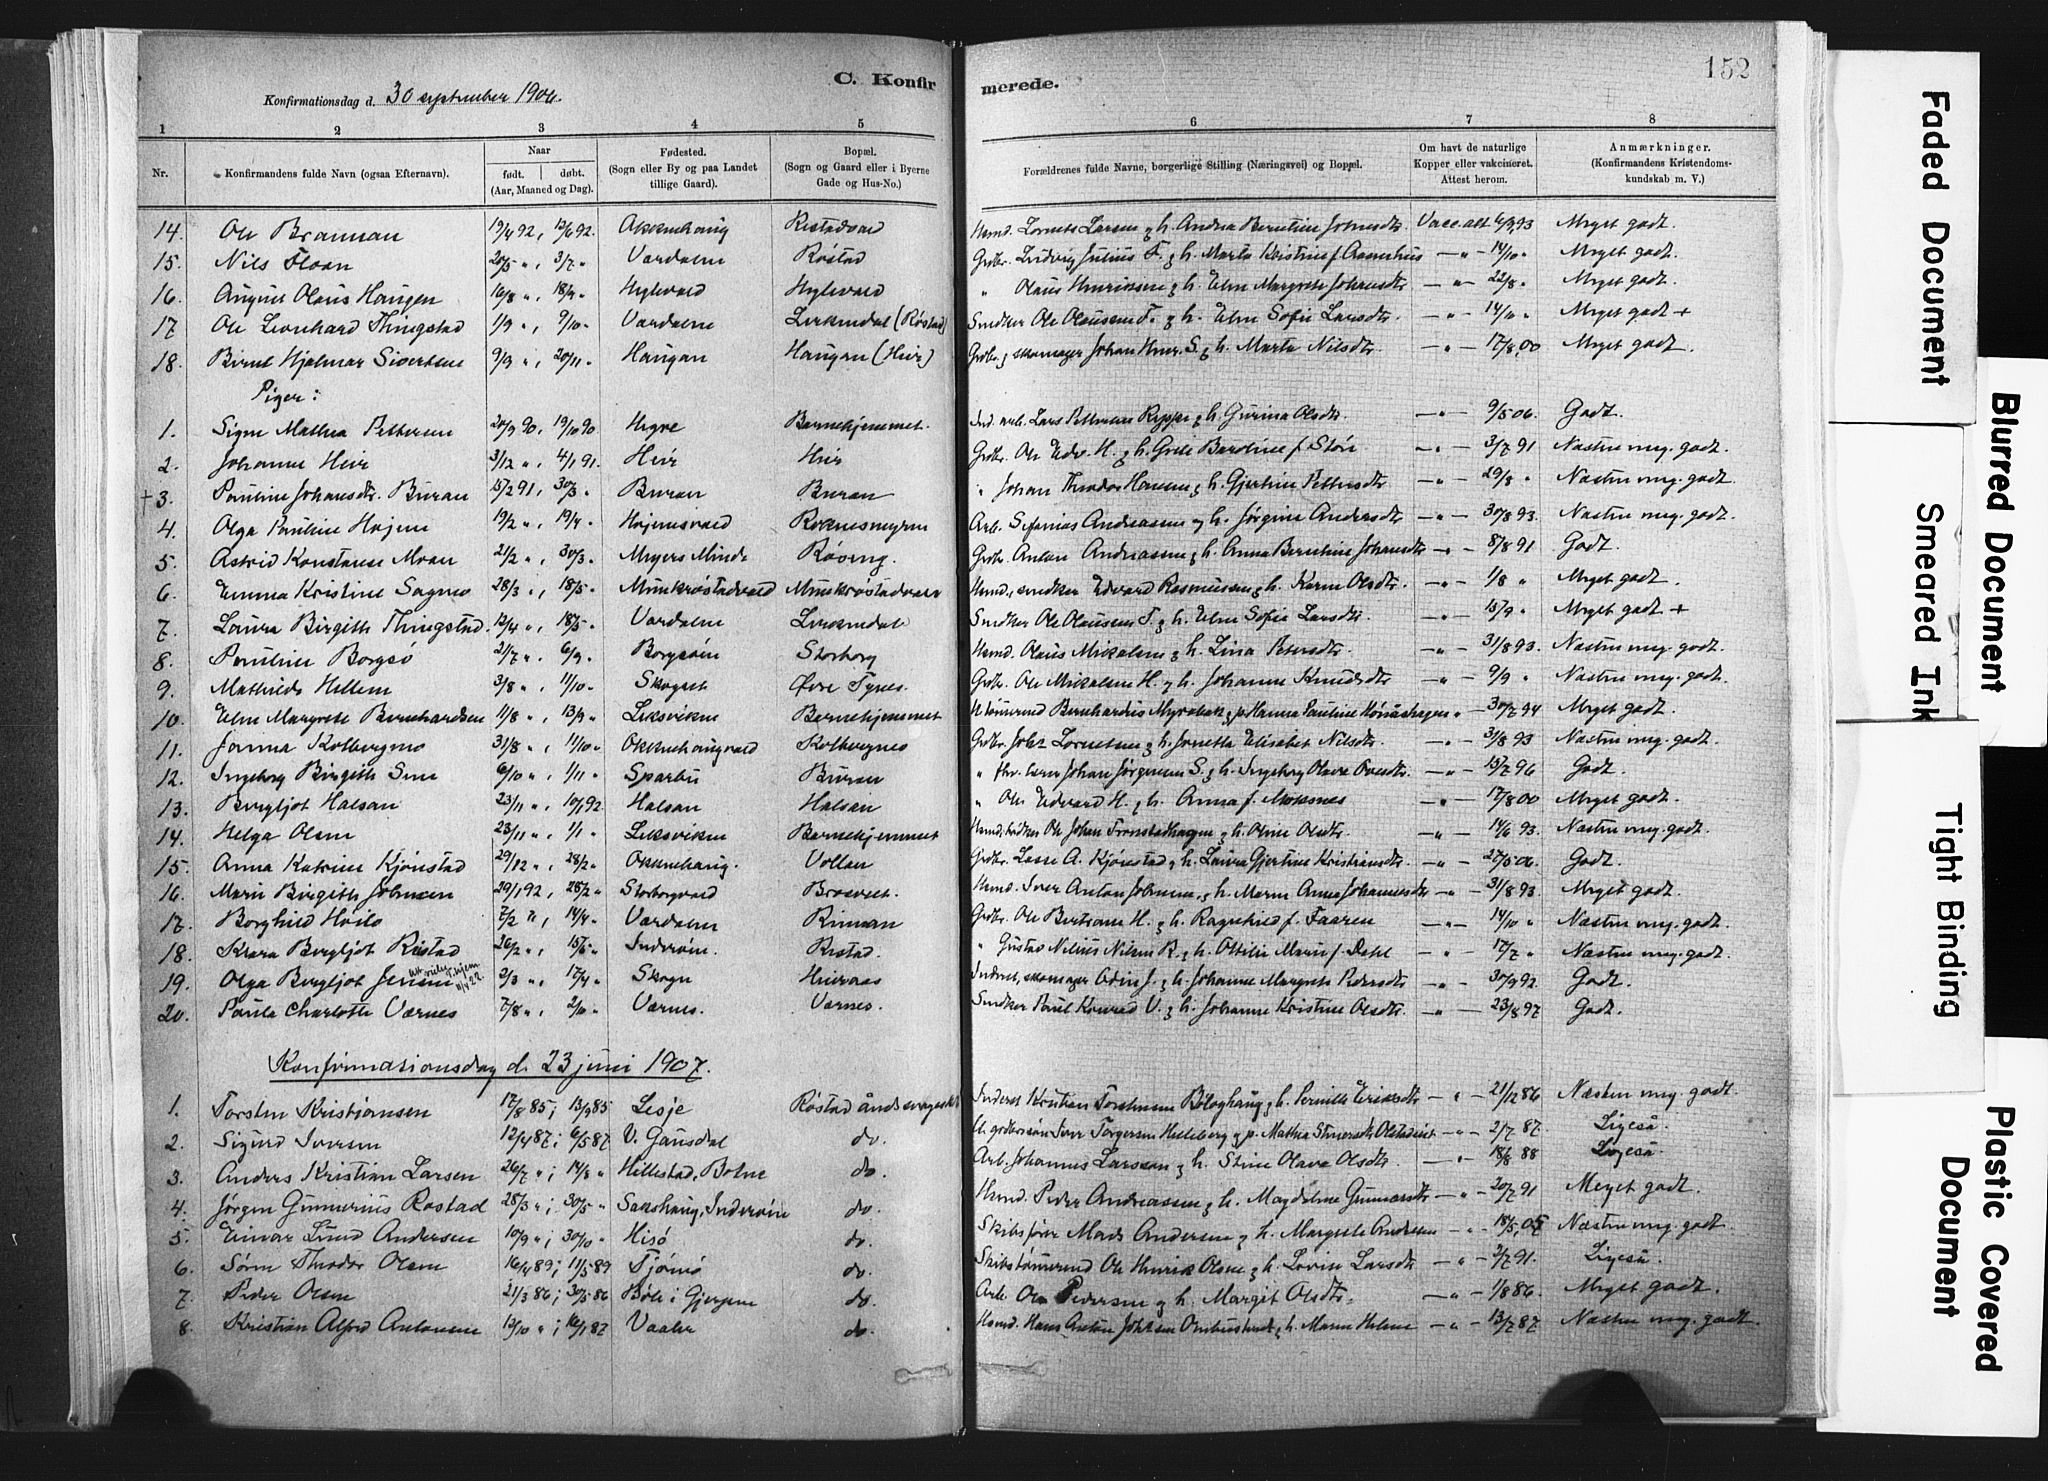 C. Konfir
merede.
152
Konfirmationsdag d. 30 september 1906.
1 2 3 4 5 6 7 8
Nr. Konfirmandens fulde Navn (ogsaa Efternavn). Naar født. døbt. (Aar, Maaned og Dag). Fødested. (Sogn eller By og paa Landet tillige Gaard). Bopæl. (Sogn og Gaard eller i Byerne Gade og Hus-No.) Forældrenes fulde Navne, borgerlige Stilling (Næringsvei) og Bopæl. Om havt de naturlige Kopper eller vakcineret. Attest herom. Anmærkninger. (Konfirmandens Kristendoms-kundskab m. V.)
14. Ole Brannan 19/4 92, 12/6 92. Okkenhaug Ristadvald Husmd. Lornts Larsen & h. Andrea Berntine Johnsdtr Vacc. att 6/9 93 Meget godt
15. Nils Floan 20/5 " , 3/7 " Værdalen Røstad Grdbr. Ludvig Julius F. & h. Marta Kristine f. Aasenhus — " — 14/10 " Meget godt.
16. August Olaus Haugen 16/8 " , 18/9 " Hylvald Hylvald " Olaus Henriksen & h. Elen Margrete Johansdtr — " — 22/8 " Meget godt.
17. Ole Leonhard Thingstad 1/9 " , 9/10 " Værdalen Lerkendal (Røstad) Snedker Ole Olaussen T. & h. Elen Sofie Larsdtr. — " — 14/11 " Meget godt +
18. Bernt Hjalmar Sivertsen 9/9 " , 20/11 " Haugan Haugan (Heir) Grdbr. & skomager Johan Henr. S. & h. Marta Nilsdtr. — " — 17/8 00 Meget godt.
Piger:
1. Signe Mathea Pettersen 20/9 90, 19/10 90 Hegre Barnehjemmet. Ind. arb. Lars Pettersen Reppe & h. Gurina Olsdtr. — " — 9/5 06. Godt.
2. Johanne Heir 3/12 " , 4/1 91. Heir Heir Grdbr. Ole Edv. H. & h. Grete Bardine f. Støre — " — 3/7 91 Næsten meg. godt.
+3. Pauline Johansdtr. Buran 15/2 91, 30/3 " Buran Buran " Johan Theodor Hansen & h. Gjertine Pettersdtr — " — 29/8 " Næsten meg. godt.
4. Olga Pauline Hojem 19/2 " , 19/4 " Hojemsvald Roknesmyren Arb. Sefanias Andreassen & h. Jørgine Andersdtr — " — 30/8 93. Næsten meg. godt.
5. Astrid Konstanse Moan 21/2 " , 30/3 " Meyers Minde Røvreg. Grdbr. Anton Andreassen & h. Anna Berntine Johansdtr — " — 8/8 91 Godt.
6. Emma Kristine Sagmo 28/3 " , 18/5 " Munkrøstadvald Munkrøstadvald Husmd., snedker Edvard Rasmussen & h. Karen Olsdtr. — " — 1/8 " Meget godt.
7. Laura Birgitte Thingstad. 12/4 " , 18/5 " Værdalen Lerkendal Snedker Ole Olaussen T. & h. Elen Sofie Larsdtr. — " — 15/9 " Meget godt +
8. Pauline Borgsø 21/7 " , 6/9 " Borgsøen Storborg Husmd. Olaus Mikalsen & h. Lina Petersdtr. — " — 31/8 93. Næsten meg. godt.
9. Mathilde Hellem 3/8 " , 11/10 " Skogset Øvre Tynes. Grdbr. Ole Mikalsen H. & h. Johanne Knudsdtr — " — 9/9 " Næsten meg. godt.
10. Elen Margrete Bernhardsen 11/8 " , 13/9 " Leksviken Barnehjemmet U. tømmermd Bernhardus & p. Hanna Pauline " — 30/7 94 Meget godt.
11. Janna Kolbergmo 31/8 " , 11/10 " Okkenhaugvald Kolbergmo Grdbr. Johs Lorntsen & h. Jonetta Elisabet Nilsdtr. — " — 31/8 93 Næsten meg. godt.
12. Ingeborg Birgitte Sem 6/10 " , 1/11 " Sparbu Buran " Johan Jørgensen S. & h. Ingeborg Olava — " — 15/7 96 Godt.
13. Bergljot Halsan 23/11 " , 10/1 92. Halsan Halsan " Ole Edvard H. & h. Anna f. Moksnes — " — 17/8 00 Meget godt.
14. Helga Olsen 23/11 " , 1/1 " Leksviken Barnehjemmet Ole Johan Trønstadhaugen & h. Oline Olsdtr. — " — 14/6 93. Næsten meg. godt.
15. Anna Katrine Kjønstad 29/12 " , 28/2 " Okkenhaug. Vollan Grdbr. Lasse A. Kjønstad & h. Laura Gjertine Kristiansdtr. — " — 27/5 06. Godt.
16. Marie Birgitte Johnsen 29/1 92, 28/2 " Storborgvald Brasvet. Husmd. Iver Anton Johnsen & h. Maren Anna Johannesdtr — " — 31/8 93. Meget godt.
17. Borghild Høilo 7/2 " , 14/4 " Værdalen Rinnan Grdbr. Ole Bertram H. & h. Ragnhild f. Faaren — " — 14/10 " Næsten meg. godt.
18. Klara Bergljot Ristad 26/2 " , 15/5 " Inderøen. Ristad. " Gustav Nelius Nilsen R. & h. Ottilie Marie f. Dahl — " — 17/7 " Næsten meg. godt.
19. Olga Bergljot Jensen 2/3 " , 17/4 " Skogn Heiraas Inderst, skomager Odin J. & h. Johanne Margrete Pedersdtr — " — 30/9 92. Godt.
20. Paula Charlotte Værnes 7/8 " , 2/10 " Værnes. Værnes. Snedker Paul Konrad V. & h. Johanne Kristine Olsdtr. — " — 23/8 97 Godt.
Konfirmationsdag d. 23 juni 1907.
1. Torsten Kristiansen 17/8 85; 13/9 85 Lesje Røstad åndssvageskole Inderst Kristian Torstensen Bøloghaug & h. Pernille Eriksdtr — " — 21/12 86 Næsten meg. godt.
2. Sigurd Iversen 12/4 87; 6/5 87 V. Gausdal do. U. grdbrsøn Iver Torgersen Helleberg & p. Mathea — " — 2/7 87. Ligeså.
3. Anders Kristian Larsen 26/7 " ; 14/8 " Hillestad, Botne do Arb. Johannes Larssøn & h. Stine Olava Olsdtr. — " — 18/8 88 Ligeså.
4. Jørgen Gunnerius Rostad 28/3 " ; 30/5 " Sakshaug, Inderøen do. Husmd. Peder Andreassen & h. Magdalene Gunnarsdtr — " — 20/7 91 Meget godt.
5. Einar Lund Andersen 10/9 " ; 30/10 " Hisø do. Skibsfører Mads Andersen & h. Margrete Andersen — " — 18/5 05 Næsten meg. godt
6. Søren Theodor Olsen 16/4 89; 11/5 89 Tjømø do. Skibstømmermd Ole Henrik Olsen & h. Lovise Larsdtr — " — 3/7 91. Ligeså.
7. Peder Olsen 21/3 86; 30/5 86 Bøle i Gjerpen do. Arb. Ole Pedersen & h. Margit Olsdtr. — " — 1/8 86. Meget godt.
8. Kristian Alfred Antonsen 13/10 " ; 16/1 87 Vaaler do. Husmd. Hans Anton Johnsen & h. Maren Helene — " — 13/7 87 Næsten meg. godt.
Faded Document
Blurred Document
Smeared Ink
Tight Binding
Plastic Covered Document